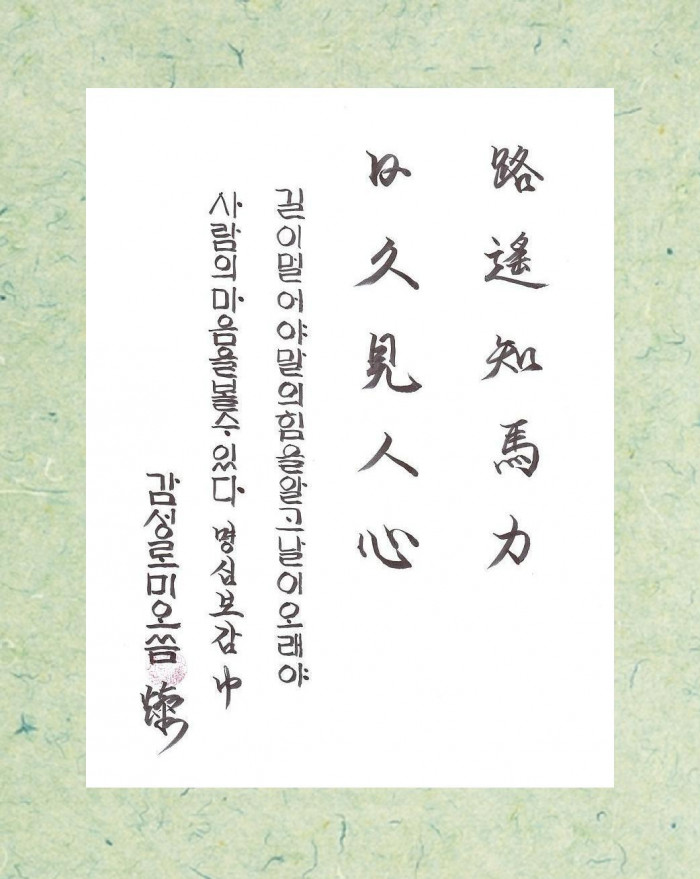 路遙知馬力
日久見人心
길이멀어야말의힘을알고날이오래야
사람의마음을볼수있다 명심보감 中
감성로미오씀